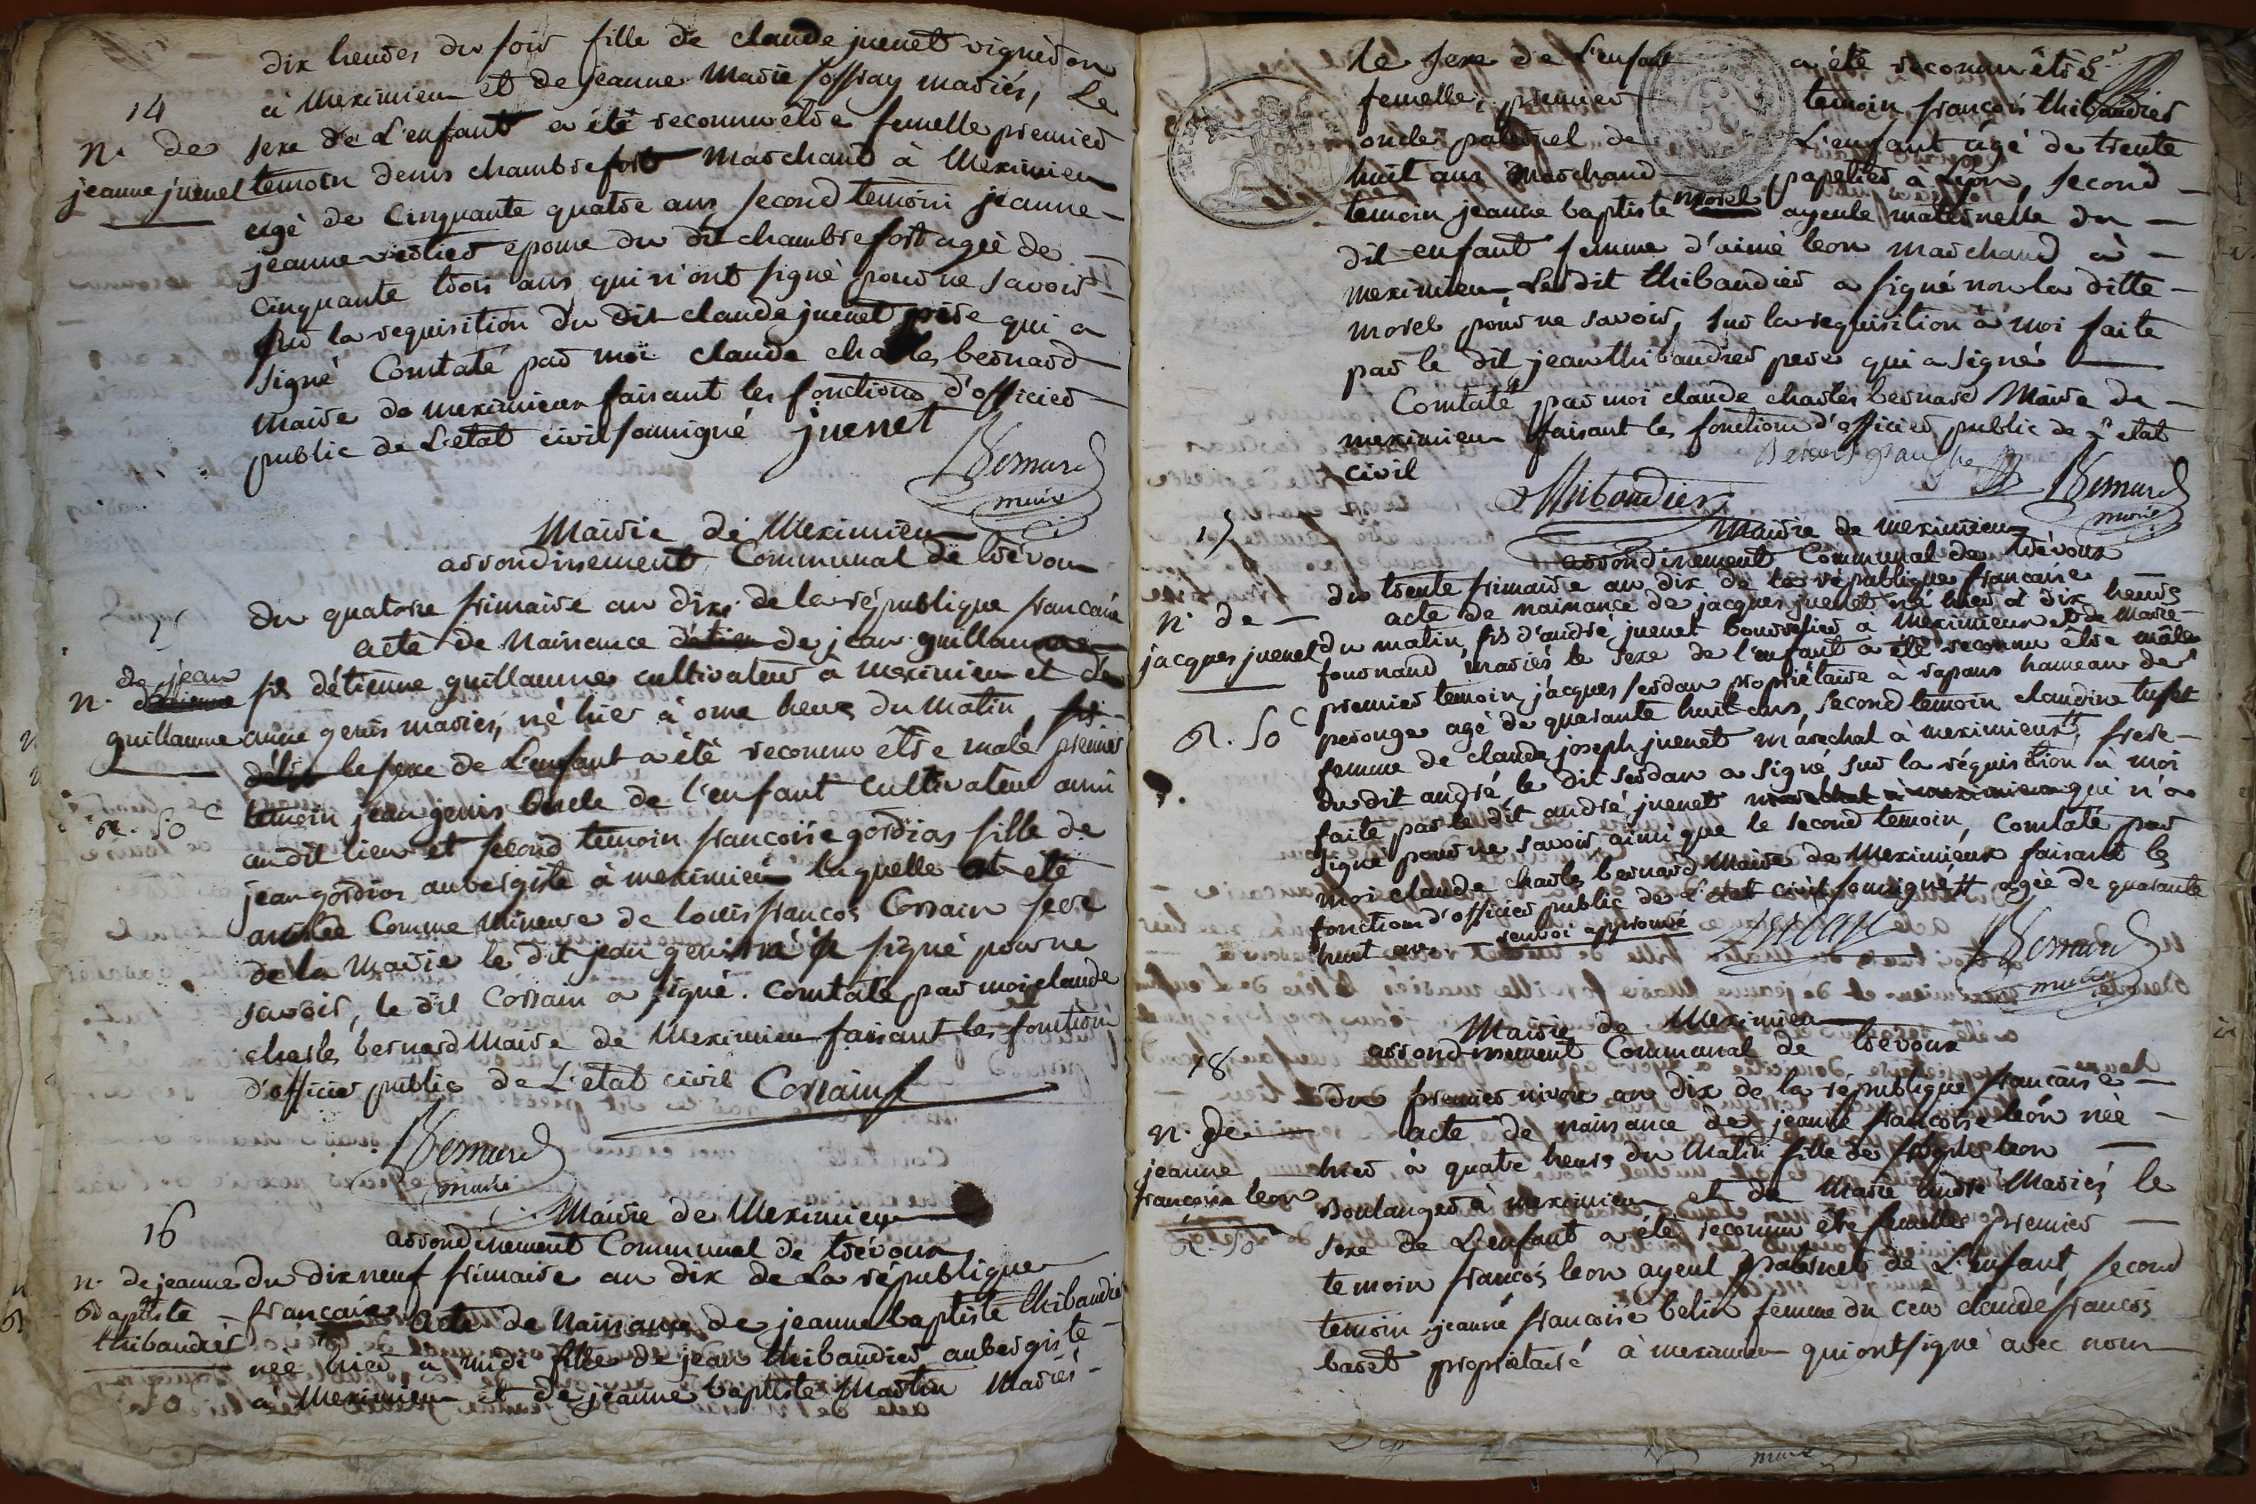 dix heures du soir fille de claude juenet vigneron
à Meximieu et de jeanne Marie joffray mariés, Le
14
N. de
jeanne juenet
sexe de L'enfant a été reconnu etre femelle premier
temoin denis chambrefort Marchand à Meximieu
agé de Cinquante quatre ans, second temoin jeanne
jeanne epouse du dit chambrefort agée de
Cinquante trois ans qui n'ont signé pour ne savoir
sur la requisition du dit claude juenet père qui a
signé Constaté par moi claude charles bernard
Maire de meximieux faisant les fonctions d'officier
public de L'etat civil soussigné juenet
Bernard
maire
Mairie de Meximieu
arrondissement Communal de trévoux
15
du quatorze frimaire an dix de la république francaise
acte de Naissance d'étien de jean guillaume
N. de jean
étienne
guillaume
fils d'étienne guillaume cultivateur à meximieu et de
anne genis mariés, né hier à onze heures du matin, fils
le sexe de L'enfant a été reconnu être male premier
R. 50 c
temoin jean genis oncle de l'enfant cultivateur aussi
au dit lieu et second temoin francoise gordias fille de
jean gordias aubergiste à meximieu laquelle a été
Comme Mineure de louis francois Corsain
de la Mairie le dit jean genis n'a signé pour ne
savoir, le dit Corsain a signé. Constaté par moi claude
charles bernard Maire de Meximieu faisant les fonctions
d'officier public de L'etat civil Corsain
Bernard
maire
Mairie de Meximieu
arrondissement Communal de trévoux
16
N. de jeanne
baptiste
thibaudier
du dix neuf frimaire an dix de la république
francaise acte de Naissance de jeanne baptiste thibaudier
née hier à midi fille de jean thibaudier aubergiste
à Meximieu et de jeanne baptiste Martin Mariés
le sexe de L'enfant a été reconnu être
femelle, premier temoin francois thibaudier
oncle paternel de L'enfant agé de trente
huit ans Marchand papetier à Lyon, second
temoin jeanne baptiste morel ayeule maternelle du
dit enfant femme d'aimé leon marchand à
meximieu, Le dit thibaudier a signé non la ditte
morel pour ne savoir, sur la requisition à moi faite
par le dit jean thibaudier pere qui a signé
Constaté par moi claude charles bernard Maire de
meximieu faisant les fonctions d'officier public de L'etat
civil
Thibaudier
Bernard
maire
17
Mairie de meximieux
arrondissement Communal de trévoux
du trente frimaire an dix de la république francaise
N. de
jacques juenet
acte de naissance de jacques juenet né hier à dix heures
du matin, fils d'andré juenet bourrelier a Meximieux et de Marie
fournand mariés le sexe de l'enfant a été reconnu etre male
premier temoin jacques serdan propriétaire à rapans hameau de
R. 50 c
perouge agé de quarante huit ans, second temoin claudine tufet
femme de claude joseph juenet maréchal à meximieux frere
du dit andré le dit serdan a signé sur la réquisition à moi
faite par le dit andré juenet maréchal à meximieux qui n'a
signé pour ne savoir, ainsi que le second temoin, Constaté par
moi claude charles bernard Maire de Meximieux faisant les
fonctions d'officier public de L'état civil soussigné # agée de quarante
huit ans renvoi approuvé
serdan
Bernard
maire
Mairie de Meximieu
arrondissement Communal de trévoux
18
du premier nivose an dix de la république francaise
N. de
jeanne
francoise leon
acte de naissance de jeanne francoise leon née
hier à quatre heures du Matin fille de leon
Boulanger à meximieu et de Marie Mariés, le
R. 50
sexe de L'enfant a été reconnu être femelle, premier
temoin francois leon ayeul paternel de L'enfant, second
temoin jeanne francoise belin femme du cen claude francois
baret propriétaire à meximieu qui ont signé avec nous